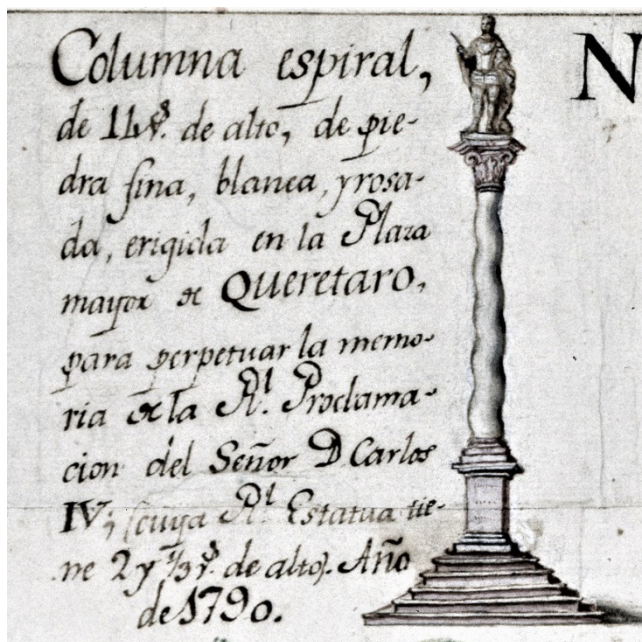 Columna espiral,
de 14 v.s de alto, de pie-
dra fina, blanca, y rosa-
da, erigida en la Plaza
mayor de QUERETARO,
para perpetuar la memo-
ria de la R.l Proclama-
cion del Señor D Carlos
IV; (cuya R.l Estatua tie-
ne 2 y 1/3 v.s de alto). Año
de 1790.
N